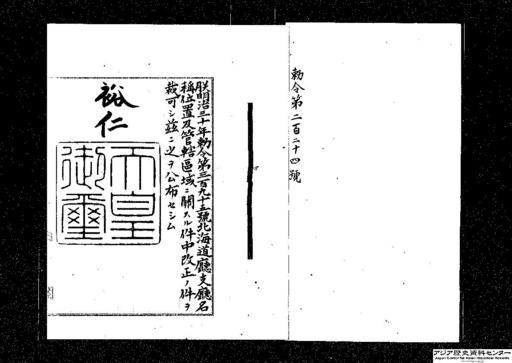 勅令第二百二十四號
朕明治三十年勅令第三百九十五號北海道廳支廳名
稱位置及管轄區域ニ關スル件中改正ノ件ヲ
裁可シ茲ニ之ヲ公布セシム
裕仁
天皇
御璽
アジア歴史資料センター
Japan Center for Asian Historical Records